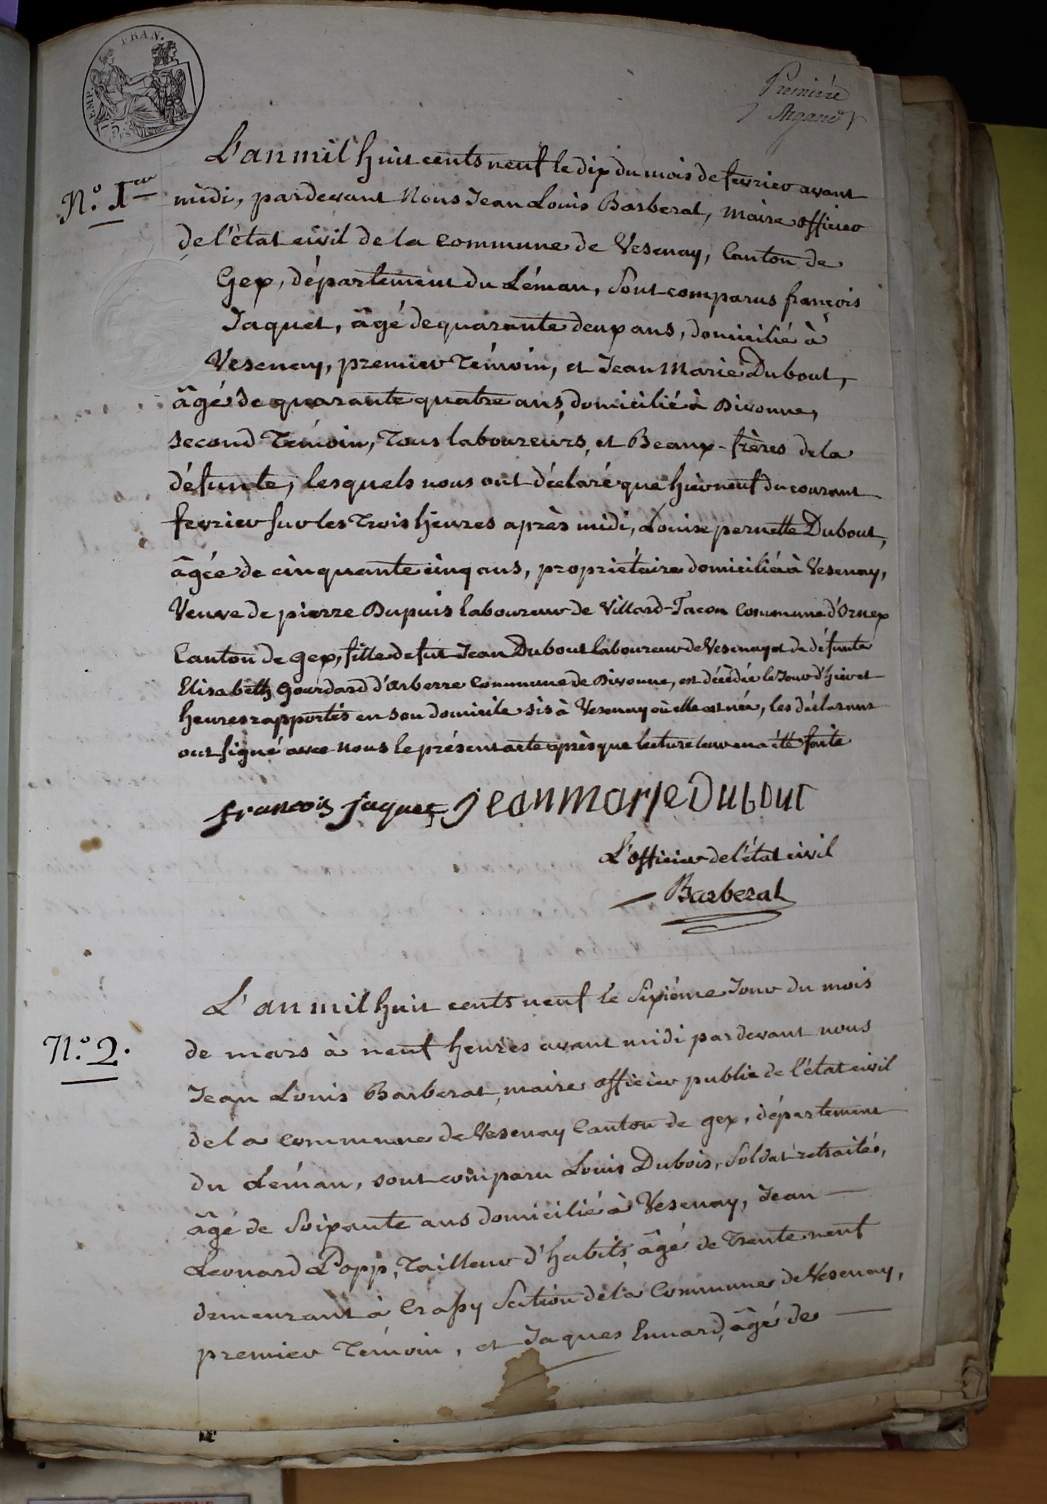 EMP. FRAN.
75
Première
N.º 1er
L'an mil huit cents neuf le dix du mois de fevrier avant
midi, pardevant Nous Jean Louis Barberat, maire officier
de l'état civil de la commune de Vesenay, Canton de
Gex, département du Léman, Sont comparus françois
Jaquet, âgé de quarante deux ans, domicilié à
Vesenay, premier Témoin, et Jean Marie Dubout,
âgé de quarante quatre ans, domicilié à Divonne,
second Témoin, Tous laboureurs, et Beaux-frères de la
défunte, lesquels nous ont déclaré que hier neuf du courant
fevrier sur les Trois heures après midi, Louise pernette Dubout,
âgée de cinquante cinq ans, propriétaire domiciliée à Vesenay,
Veuve de pierre Dupuis laboureur de Villard-Tacon Commune d'Ornex
Canton de gex, fille de fut Jean Dubout laboureur de Vesenay et de défunte
Elisabeth Gourdard d'arberre Commune de Divonne, est décédée le Jour d'hier et
heures rapportés en son domicile sis à Vesenay où elle est née, les déclarans
ont signé avec nous le présent acte après que lecture leur en a été faite
francois jaquet jean marie Dubout
L'officier de l'état civil
Barberat
N.º 2.
L'an mil huit cents neuf le Sixième Jour du mois
de mars à neuf heures avant midi pardevant nous
Jean Louis Barberat, maire officier public de l'état civil
de la commune de Vesenay Canton de gex, département
du Léman, sont comparu Louis Dubois, Soldat retraité,
âgé de Soixante ans domicilié à Vesenay, Jean
Leonard Popp, Tailleur d'habits, âgé de Trente neuf
demeurant à Crassy Section de la Commune de Vesenay,
premier Témoin, et Jaques Ennard, âgé de